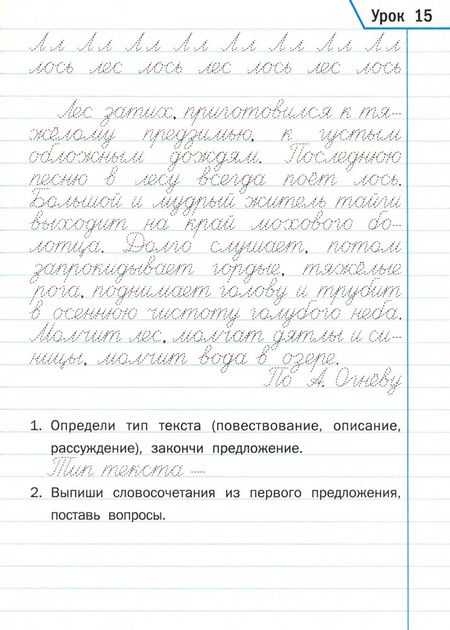 Урок 15
Лл Лл Лл Лл Лл Лл Лл Лл
лось лес лось лес лось лес лось
Лес затих, приготовился к тя-
жёлому предзимью, к густым
обложным дождям. Последнюю
песню в лесу всегда поёт лось.
Большой и мудрый житель тайги
выходит на край мохового бо-
лотца. Долго слушает, потом
запрокидывает гордые, тяжёлые
рога, поднимает голову и трубит
в осеннюю чистоту голубого неба.
Молчит лес, молчат дятлы и си-
ницы, молчит вода в озере.
По А. Огнёву
1. Определи тип текста (повествование, описание,
рассуждение), закончи предложение.
Тип текста ....
2. Выпиши словосочетания из первого предложения,
поставь вопросы.